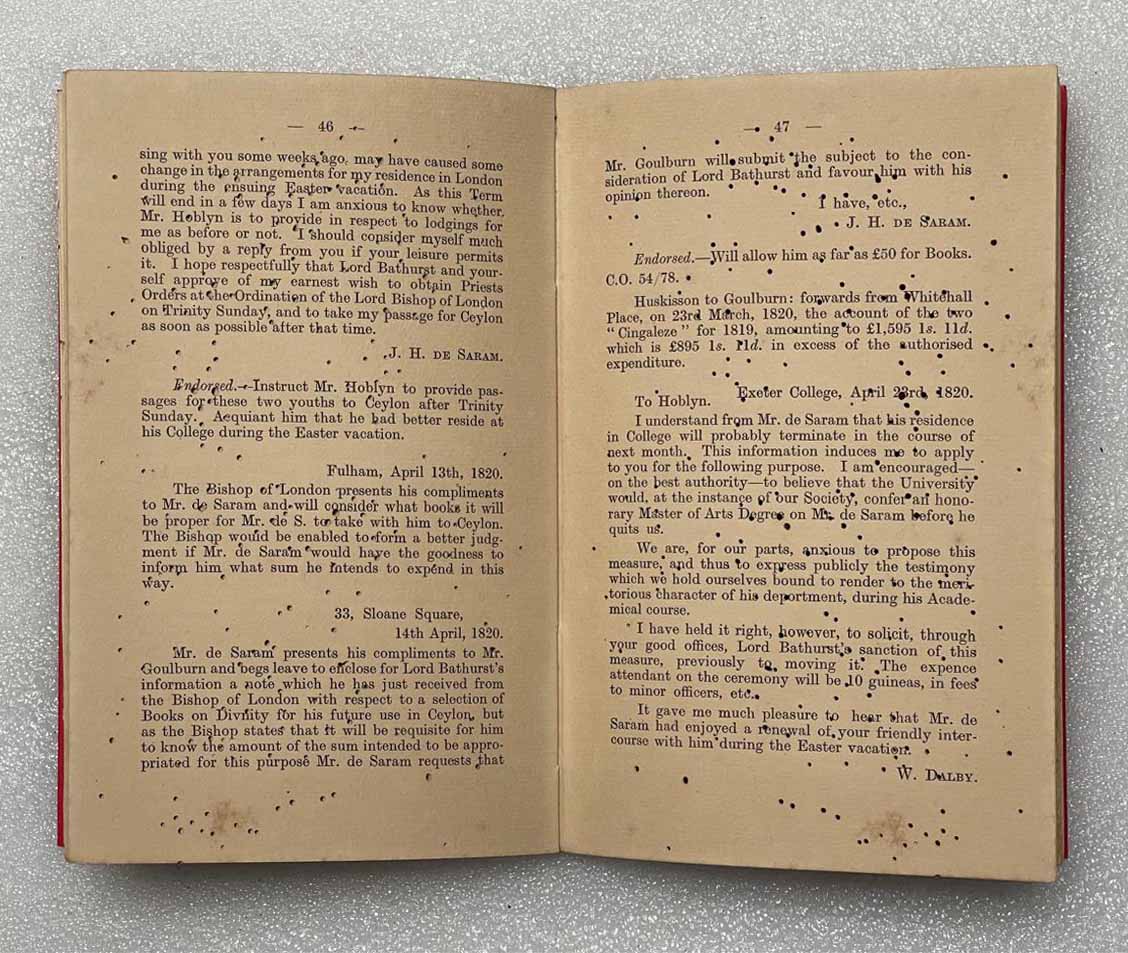 — 46 —
sing with you some weeks ago, may have caused some
change in the arrangements for my residence in London
during the ensuing Easter vacation. As this Term
will end in a few days I am anxious to know whether
Mr. Hoblyn is to provide in respect to lodgings for
me as before or not. I should consider myself much
obliged by a reply from you if your leisure permits
it. I hope respectfully that Lord Bathurst and your-
self approve of my earnest wish to obtain Priests
Orders at the Ordination of the Lord Bishop of London
on Trinity Sunday, and to take my passage for Ceylon
as soon as possible after that time.
J. H. DE SARAM.
Endorsed.—Instruct Mr. Hoblyn to provide pas-
sages for these two youths to Ceylon after Trinity
Sunday. Aequiant him that he had better reside at
his College during the Easter vacation.
Fulham, April 13th, 1820.
The Bishop of London presents his compliments
to Mr. de Saram and will consider what books it will
be proper for Mr. de S. to take with him to Ceylon.
The Bishop would be enabled to form a better judg-
ment if Mr. de Saram would have the goodness to
inform him what sum he intends to expend in this
way.
33, Sloane Square,
14th April, 1820.
Mr. de Saram presents his compliments to Mr.
Goulburn and begs leave to enclose for Lord Bathurst's
information a note which he has just received from
the Bishop of London with respect to a selection of
Books on Divinity for his future use in Ceylon, but
as the Bishop states that it will be requisite for him
to know the amount of the sum intended to be appro-
priated for this purpose Mr. de Saram requests that
— 47 —
Mr. Goulburn will submit the subject to the con-
sideration of Lord Bathurst and favour him with his
opinion thereon.
I have, etc.,
J. H. DE SARAM.
Endorsed.—Will allow him as far as £50 for Books.
C.O. 54/78.
Huskisson to Goulburn: forwards from Whitehall
Place, on 23rd March, 1820, the account of the two
"Cingaleze" for 1819, amounting to £1,595 1s. 11d.
which is £895 1s. 11d. in excess of the authorised
expenditure.
Exeter College, April 23rd, 1820.
To Hoblyn.
I understand from Mr. de Saram that his residence
in College will probably terminate in the course of
next month. This information induces me to apply
to you for the following purpose. I am encouraged—
on the best authority—to believe that the University
would, at the instance of our Society, confer an hono-
rary Master of Arts Degree on Mr. de Saram before he
quits us.
We are, for our parts, anxious to propose this
measure, and thus to express publicly the testimony
which we hold ourselves bound to render to the meri-
torious character of his deportment, during his Acade-
mical course.
I have held it right, however, to solicit, through
your good offices, Lord Bathurst's sanction of this
measure, previously to moving it. The expence
attendant on the ceremony will be 10 guineas, in fees
to minor officers, etc.
It gave me much pleasure to hear that Mr. de
Saram had enjoyed a renewal of your friendly inter-
course with him during the Easter vacation.
W. DALBY.